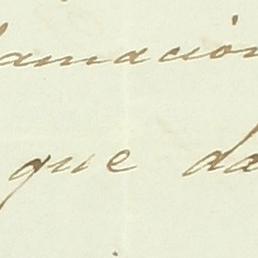 lamación
que da